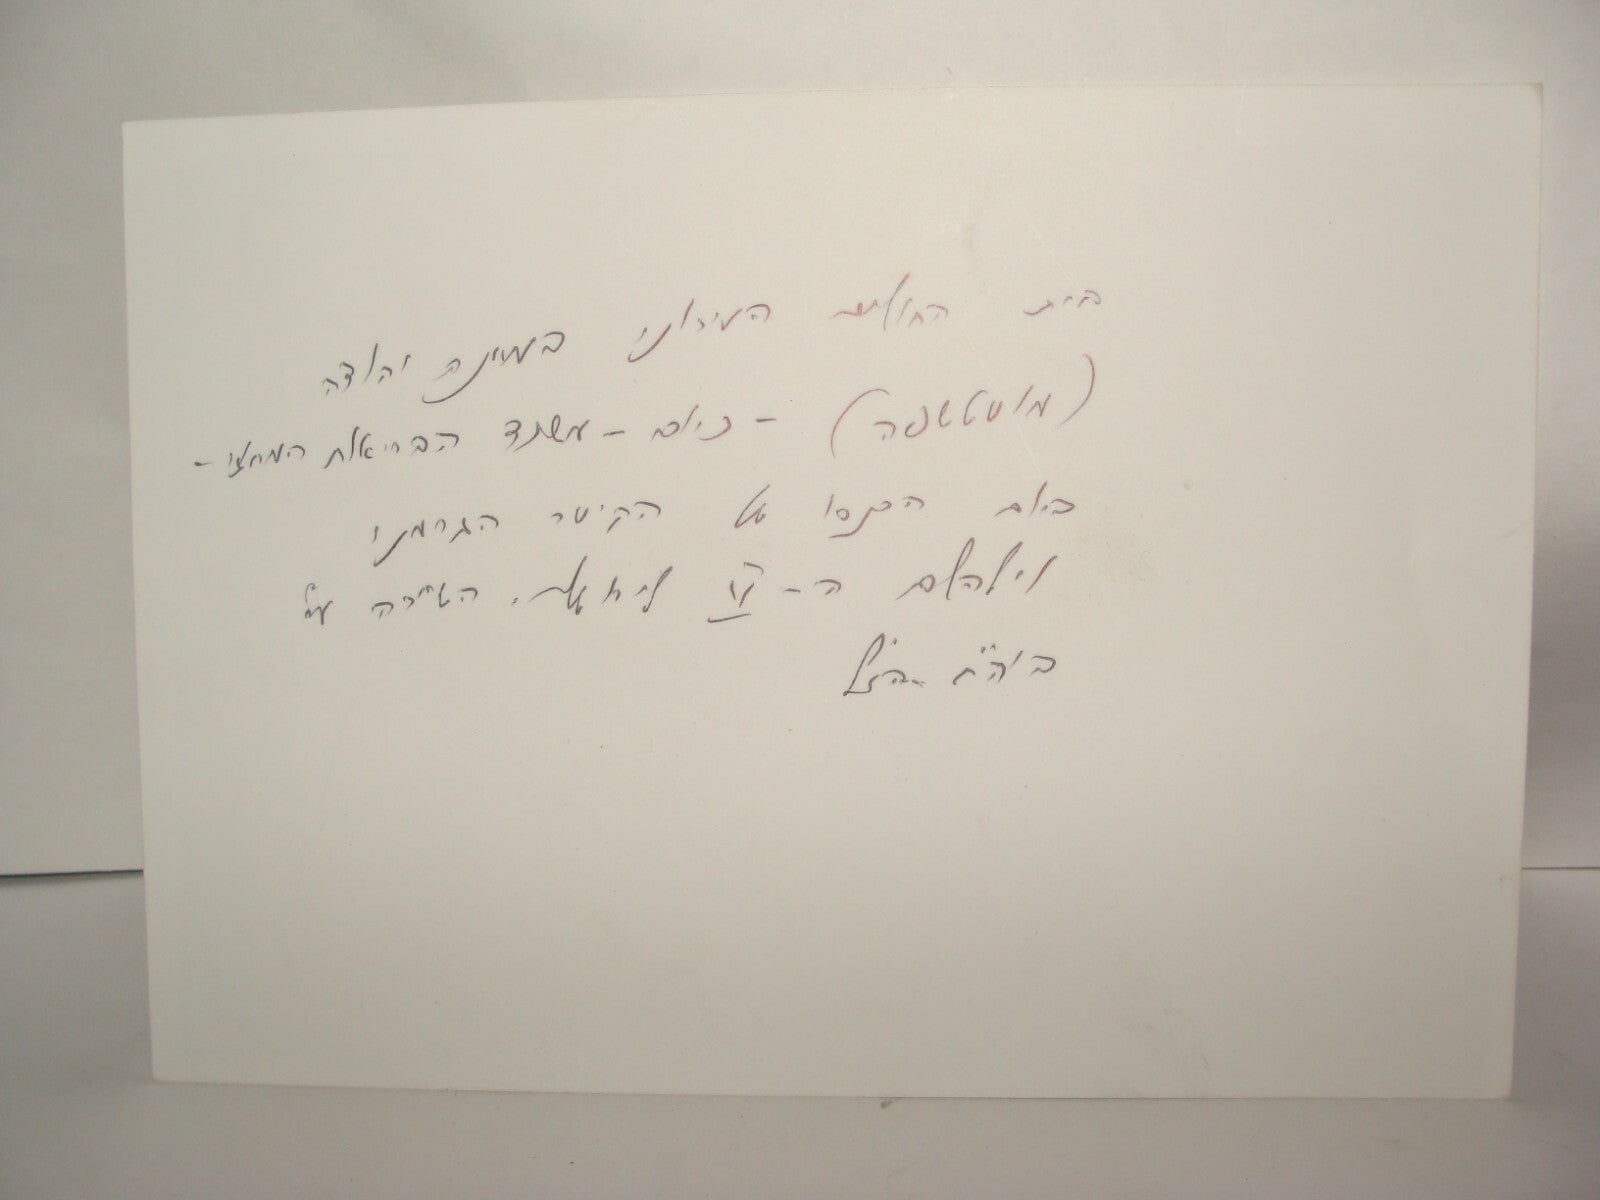 בית החולים העירוני במחנה יהודה
(מוסטשפה) - כיום - משרד הבריאות המחוזי -
ביום הכנסו של הקיסר הגרמני
וילהלם ה- II לירושלים. השיירה על
ביה"ח הנ"ל